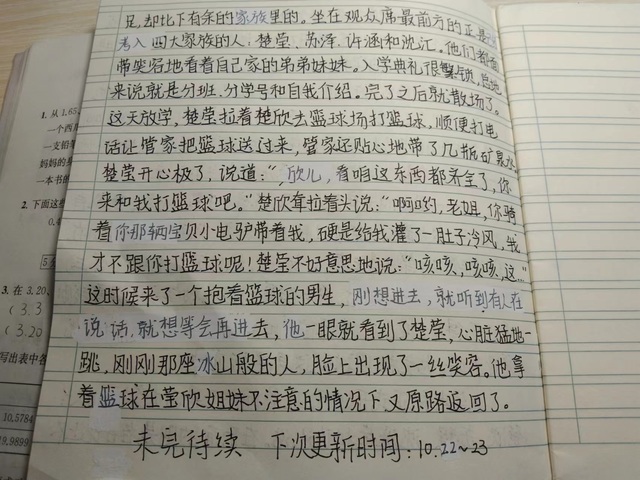 足,却比下有余的家族里的。坐在观众席最前方的正是
考入四大家族的人:楚莹、苏泽、许涵和沈汇。他们都面
带笑容地看着自己家的弟弟妹妹。入学典礼很繁锁,总地
来说就是分班、分学号和自我介绍。完了之后就散场了。
这天放学,楚莹拉着楚欣去篮球场打篮球,顺便打电
话让管家把篮球送过来,管家还贴心地带了几瓶矿泉水。
楚莹开心极了,说道:“,欣儿,看咱这东西都齐全了,你
来和我打篮球吧。”楚欣耷拉着头说:“啊哟,老姐,你骑
着你那辆宝贝小电驴带着我,硬是给我灌了一肚子冷风,我
才不跟你打篮球呢!楚莹不好意思地说:“咳咳,咳咳,这…”
这时候来了一个抱着篮球的男生,刚想进去,就听到有人在
说话,就想等会再进去,他一眼就看到了楚莹,心脏猛地一
跳,刚刚那座冰山般的人,脸上出现了一丝笑容。他拿
着篮球在莹欣姐妹不注意的情况下又原路返回了。
未完待续 下次更新时间:10.22~23
1. 从1.85
一个西
一支铅
妈妈的
一本书
2. 下面这些
0.4
3. 在 3.20、
( 3.3
( 3.20
写出表中各
10.5784
19.9899